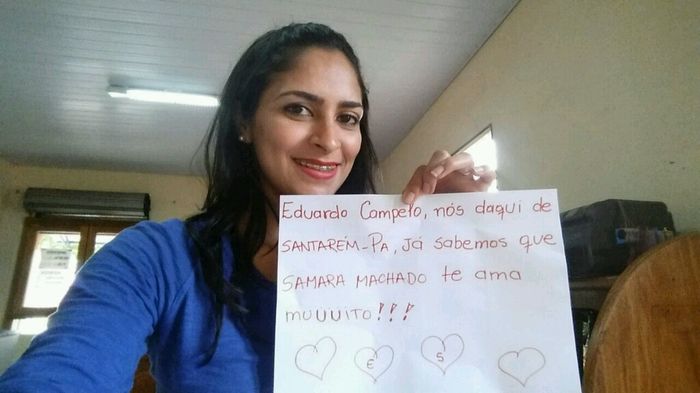 Eduardo Campelo, nós daqui de
SANTARÉM-PA, JÁ sabemos que
SAMARA MACHADO te ama
MUUUITO!!!
E S